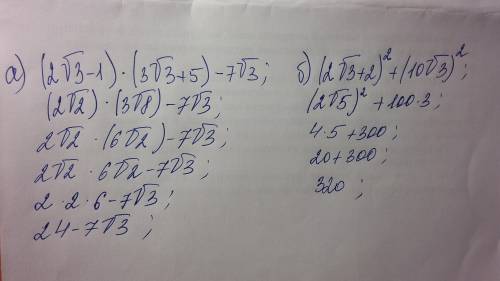 а) (2√3-1)·(3√3+5)-7√3;
(2√2)·(3√8)-7√3;
2√2·(6√2)-7√3;
2√2·6√2-7√3;
2·2·6-7√3;
24-7√3;
б) (2√3+2)²+(10√3)²;
(2√5)²+100·3;
4·5+300;
20+300;
320;